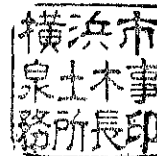 横浜市
泉土木事
務所長印